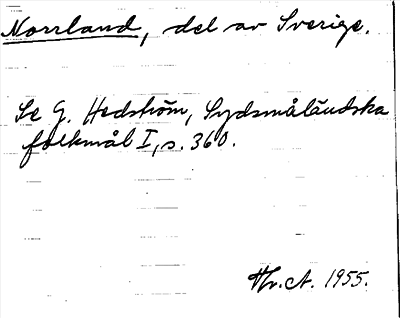 Norrland, del av Sverige.
Se G. Hedström, Sydsmåländska
folkmål I, s. 360.
Hr. A. 1955.